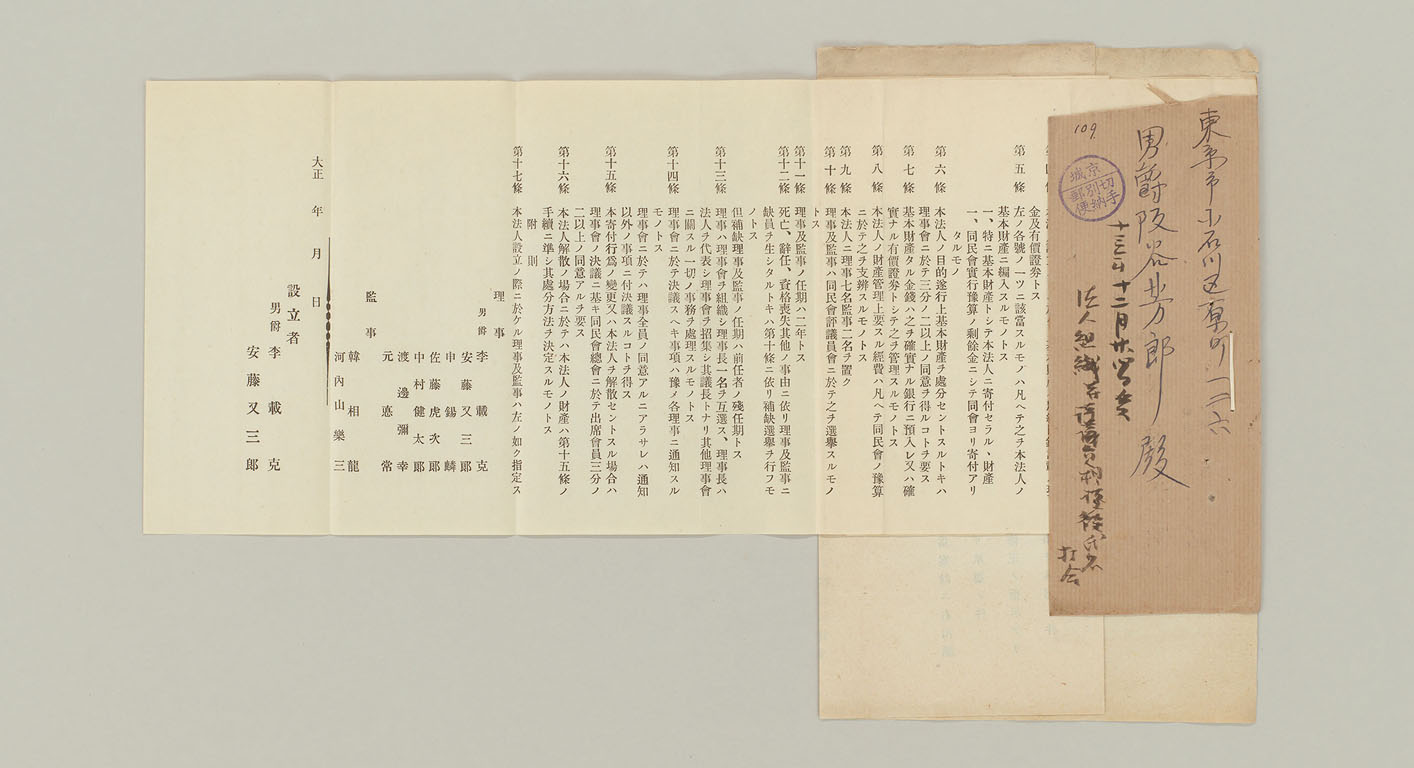 東京市小石川区原町一二六
男爵阪谷芳郎殿
109
京城
切手別納
郵便
打合
第五條
金及有價證券トス
左ノ各號ノ一ツニ該當スルモノハ凡ヘテ之ヲ本法人ノ
基本財產ニ編入スルモノトス
一、特ニ基本財產トシテ本法人ニ寄付セラル、財產
一、同民會實行豫算ノ剩餘金ニシテ同會ヨリ寄付アリ
タルモノ
第六條 本法人ノ目的遂行上基本財產ヲ處分セントスルトキハ
理事會ニ於テ三分ノ二以上ノ同意ヲ得ルコトヲ要ス
第七條 基本財產タル金錢ハ之ヲ確實ナル銀行ニ預入レ又ハ確
實ナル有價證券トシテ之ヲ管理スルモノトス
第八條 本法人ノ財產管理上要スル經費ハ凡ヘテ同民會ノ豫算
ニ於テ之ヲ支辨スルモノトス
第九條 本法人ニ理事七名監事二名ヲ置ク
第十條 理事及監事ハ同民會評議員會ニ於テ之ヲ選擧スルモノ
トス
第十一條 理事及監事ノ任期ハ二年トス
第十二條 死亡、辭任、資格喪失其他ノ事由ニ依リ理事及監事ニ
缺員ヲ生シタルトキハ第十條ニ依リ補缺選擧ヲ行フモ
ノトス
但補缺理事及監事ノ任期ハ前任者ノ殘任期トス
第十三條 理事ハ理事會ヲ組織シ理事長一名ヲ互選ス、理事長ハ
法人ヲ代表シ理事會ヲ招集シ其議長トナリ其他理事會
ニ關スル一切ノ事務ヲ處理スルモノトス
第十四條 理事會ニ於テ決議スヘキ事項ハ豫メ各理事ニ通知スル
モノトス
理事會ニ於テハ理事全員ノ同意アルニアラサレハ通知
以外ノ事項ニ付決議スルコトヲ得ス
第十五條 本寄付行爲ノ變更又ハ本法人ヲ解散セントスル場合ハ
理事會ノ決議ニ基キ同民會總會ニ於テ出席會員三分ノ
二以上ノ同意アルヲ要ス
第十六條 本法人解散ノ場合ニ於テハ本法人ノ財產ハ第十五條ノ
手續ニ準シ其處分方法ヲ決定スルモノトス
附則
第十七條 本法人設立ノ際ニ於ケル理事及監事ハ左ノ如ク指定ス
理事
男爵 李載克
安藤又三郎
申錫麟
佐藤虎次郎
中村健太郎
渡邊彌幸
元悳常
監事
韓相龍
河內山樂三
大正 年 月 日
設立者
男爵 李載克
安藤又三郎